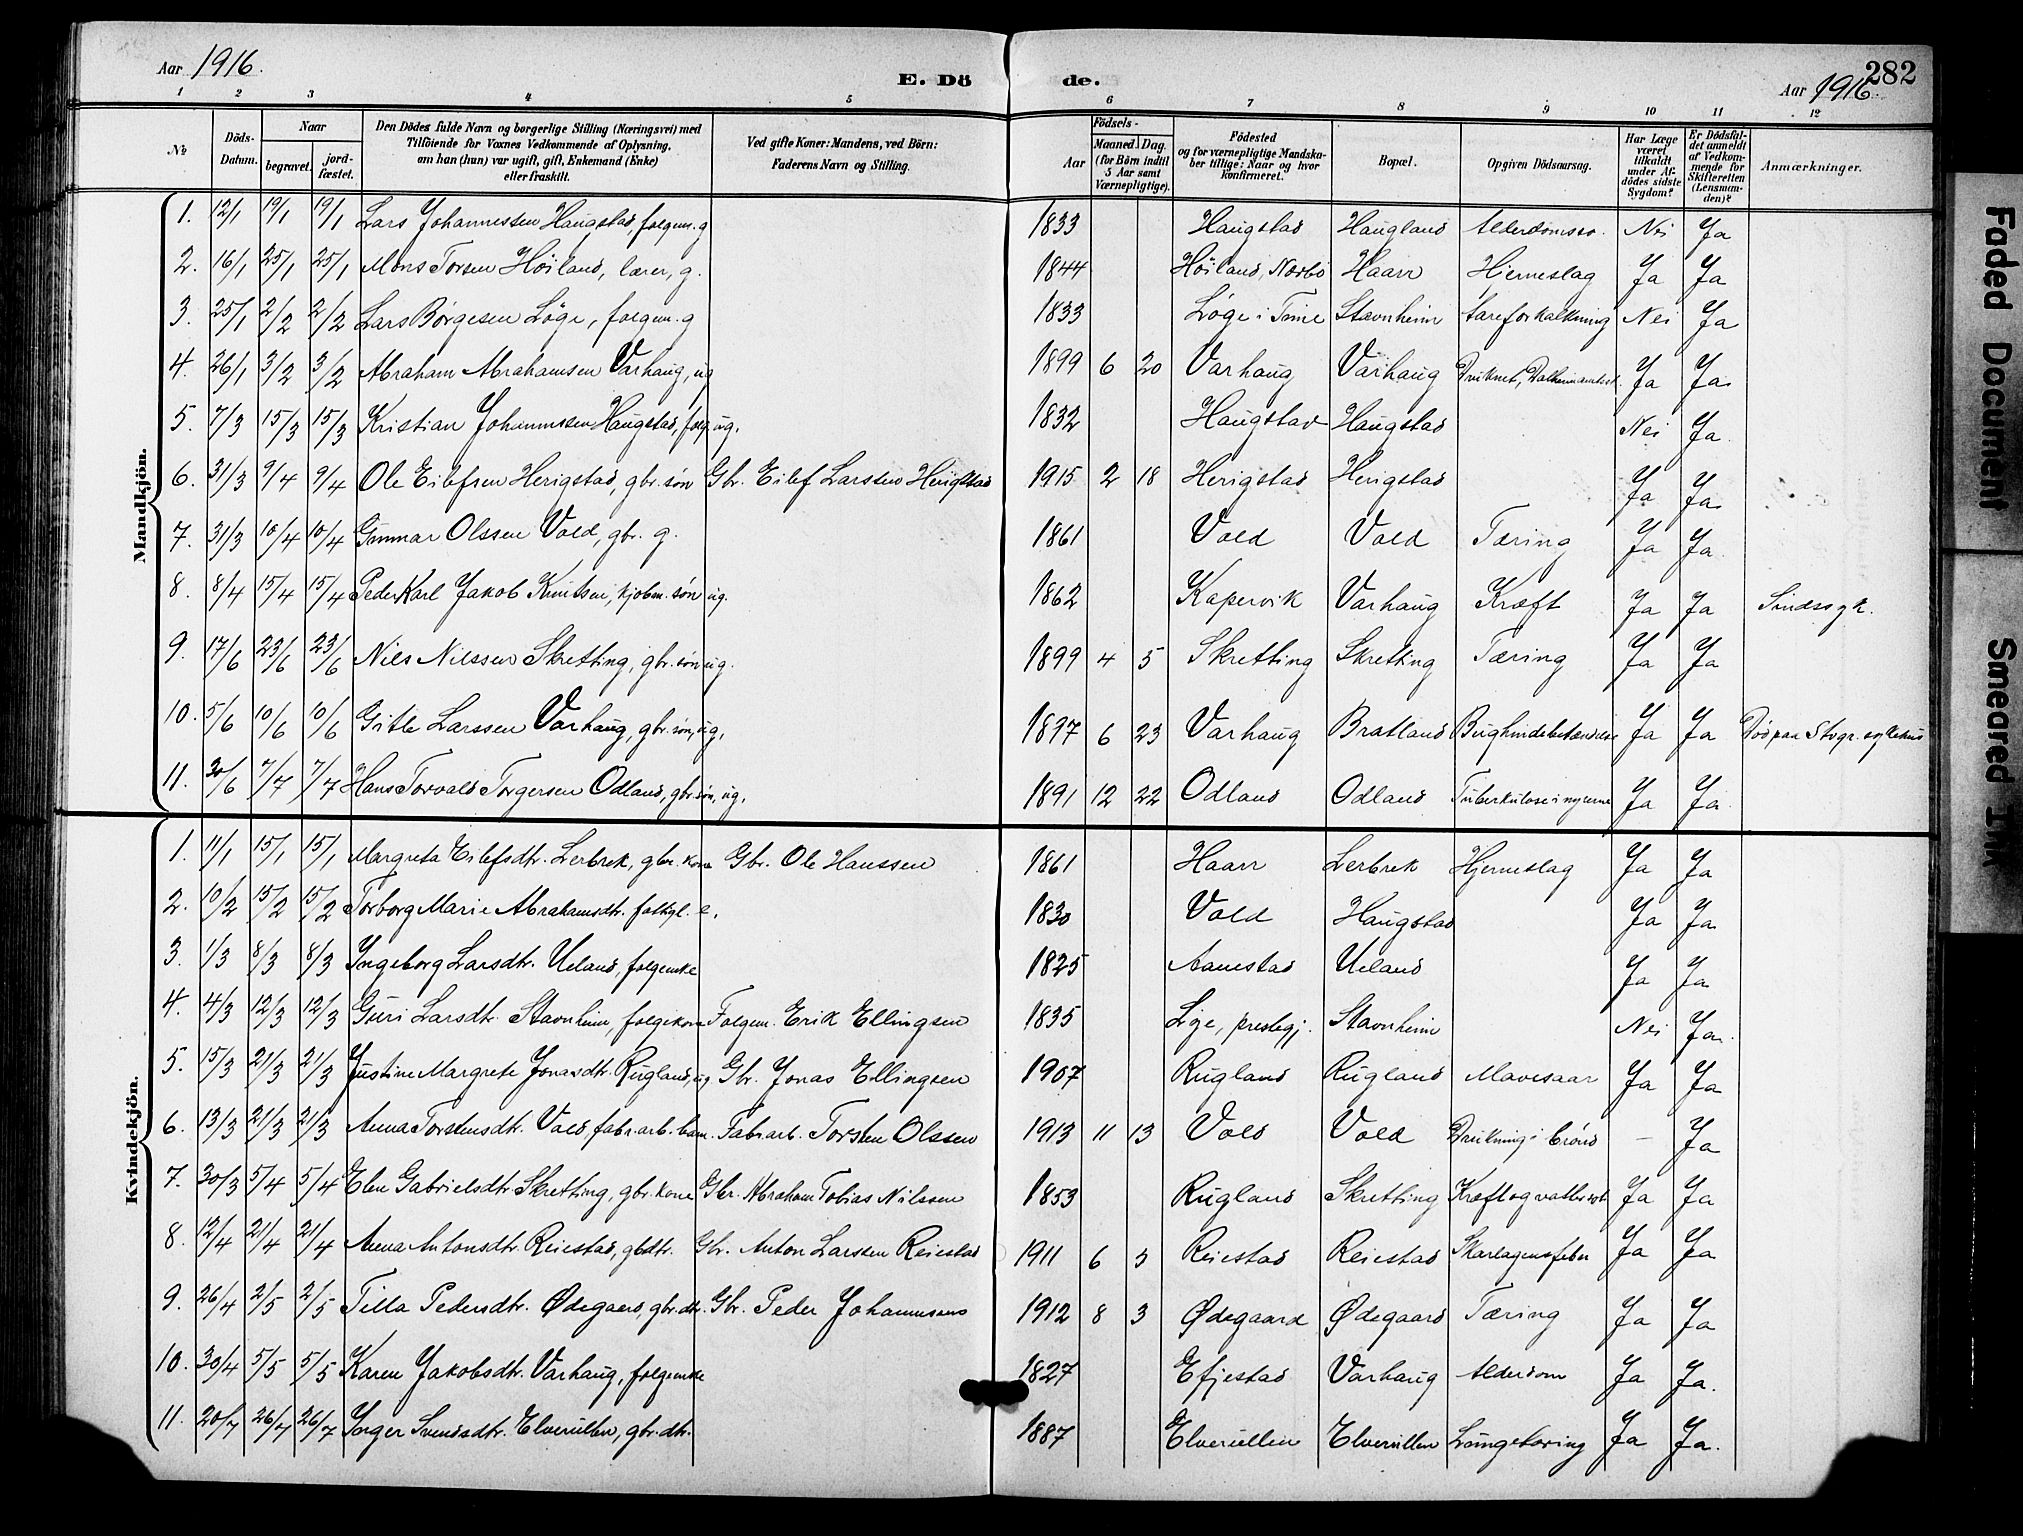 Aar 1916.
E. Dö
de.
282
Aar 1916.
1 2 3 4 5 6 7 8 9 10 11 12
№
Döds-Datum.
Naar
begravet.
jord-fæstet.
Den Dödes fulde Navn og borgerlige Stilling (Næringsvei) med Tilföiende for Voxnes Vedkommende af Oplysning, om han (hun) var ugift, gift, Enkemand (Enke) eller fraskilt.
Ved gifte Koner: Mandens, ved Börn: Faderens Navn og Stilling.
Födsels-
Aar
Maaned. Dag. (for Börn indtil 5 Aar samt Værnepligtige).
Födested og for værnepligtige Mandska-ber tillige: Naar og hvor Konfirmeret.
Bopæl.
Opgiven Dödsaarsag.
Har Læge været tilkaldt under Af-dödes sidste Sygdom?
Er Dödsfal-det anmeldt af Vedkom-mende for Skifteretten (Lensman-den)?
Anmærkninger.
Mandkjön.
1. 12/1 19/1 19/1 Lars Johannessen Haugstad, folgem. g 1833 Haugstad Haugland Nei Ja
2. 16/1 25/1 25/1 Mons Torsen Höiland, lærer, g. 1844 Höiland, Nærbö Haarr Hjerneslag Ja Ja
3. 25/1 2/2 2/2 Lars Börgesen Löge, folgem. g 1833 Löge i Time Stavnheim Aareforkalkning Nei Ja
4. 26/1 3/2 3/2 Abraham Abrahamsen Varhaug, ug 1899 6 20 Varhaug Varhaug Druknet, Ja Ja
5. 7/3 15/3 15/3 Kristian Johannessen Haugstad, folg. ug. 1832 Haugstad Haugstad Nei Ja.
6. 31/3 9/4 9/4 Ole Eilefsen Herigstad, gbr. søn Gbr. Eilef Larssen Herigstad 1915 2 18 Herigstad Herigstad Ja Ja
7. 31/3 10/4 10/4 Gunnar Olssen Vold, gbr. g. 1861 Vold Vold Tæring Ja Ja.
8. 8/4 15/4 15/4 Peder Karl Jakob Knutsen, kjobm. søn ug. 1862 Kapervik Varhaug Kræft Ja Ja Sindssyk.
9. 17/6 23/6 23/6 Nils Nilssen Skretting, gbr. søn ug. 1899 4 5 Skretting Skretting Tæring Ja Ja
10. 5/6 10/6 10/6 Gitle Larssen Varhaug, gbr. søn, ug, 1897 6 23 Varhaug Bratland Bughindebetændelse Ja Ja Död paa Stvgr. sykehus
11. 30/6 7/7 7/7 Hans Torvald Torgersen Odland, gbr. søn, ug, 1891 12 22 Odland Odland Tuberkulose i nyrerne Ja Ja.
Kvindekjön.
1. 11/1 15/1 15/1 Margreta Eilefsdtr. Lerbrek, gbr. kone Gbr. Ole Hanssen 1861 Haarr Lerbrek Hjerneslag Ja Ja
2. 10/2 15/2 15/2 Torborg Marie Abrahamsdtr. e. 1830 Vold Haugstad Ja Ja
3. 1/3 8/3 8/3 Ingeborg Larsdtr. Ueland, folgenke 1825 Aanestad Ueland Ja Ja
4. 4/3 12/3 12/3 Guri Larsdtr. Stavnheim, folgekone Folgem. Erik Ellingsen 1835 Lye, prestegj. Stavnheim Nei Ja.
5. 15/3 21/3 21/3 Justine Margrete Jonasdtr. Rugland, ug Gbr. Jonas Ellingsen 1907 Rugland Rugland Mavesaar Ja Ja
6. 13/3 21/3 21/3 Anna Torstensdtr. Vold, fabr. arb. barn. Fabr arb. Torsten Olssen 1913 11 13 Vold Vold Drukning i brönd — Ja
7. 30/3 5/4 5/4 Elen Gabrielsdtr. Skretting, gbr. kone Gbr. Abraham Tobias Nilssen 1853 Rugland Skretting Kræft og vattersot Ja Ja
8. 12/4 21/4 21/4 Anna Antonsdtr. Reiestad, gbdtr. Gbr. Anton Larssen Reiestad 1911 6 5 Reiestad Reiestad Skarlagensfeber Ja Ja
9. 26/4 2/5 2/5 Tilla Pedersdtr. Ødegaard, gbr. dtr. Gbr. Peder Johannesens 1912 8 3 Ødegaard Ødegaard Tæring Ja Ja
10. 30/4 5/5 5/5 Karen Jakobsdtr. Varhaug, folgenke 1827 Efjestad Varhaug Alderdom Ja Ja.
11. 20/7 26/7 26/7 Inger Svendsdtr. Elverullen, gbr. dtr. 1887 Elverullen Elverullen Lungetæring Ja Ja.
Faded Document
Smeared Ink